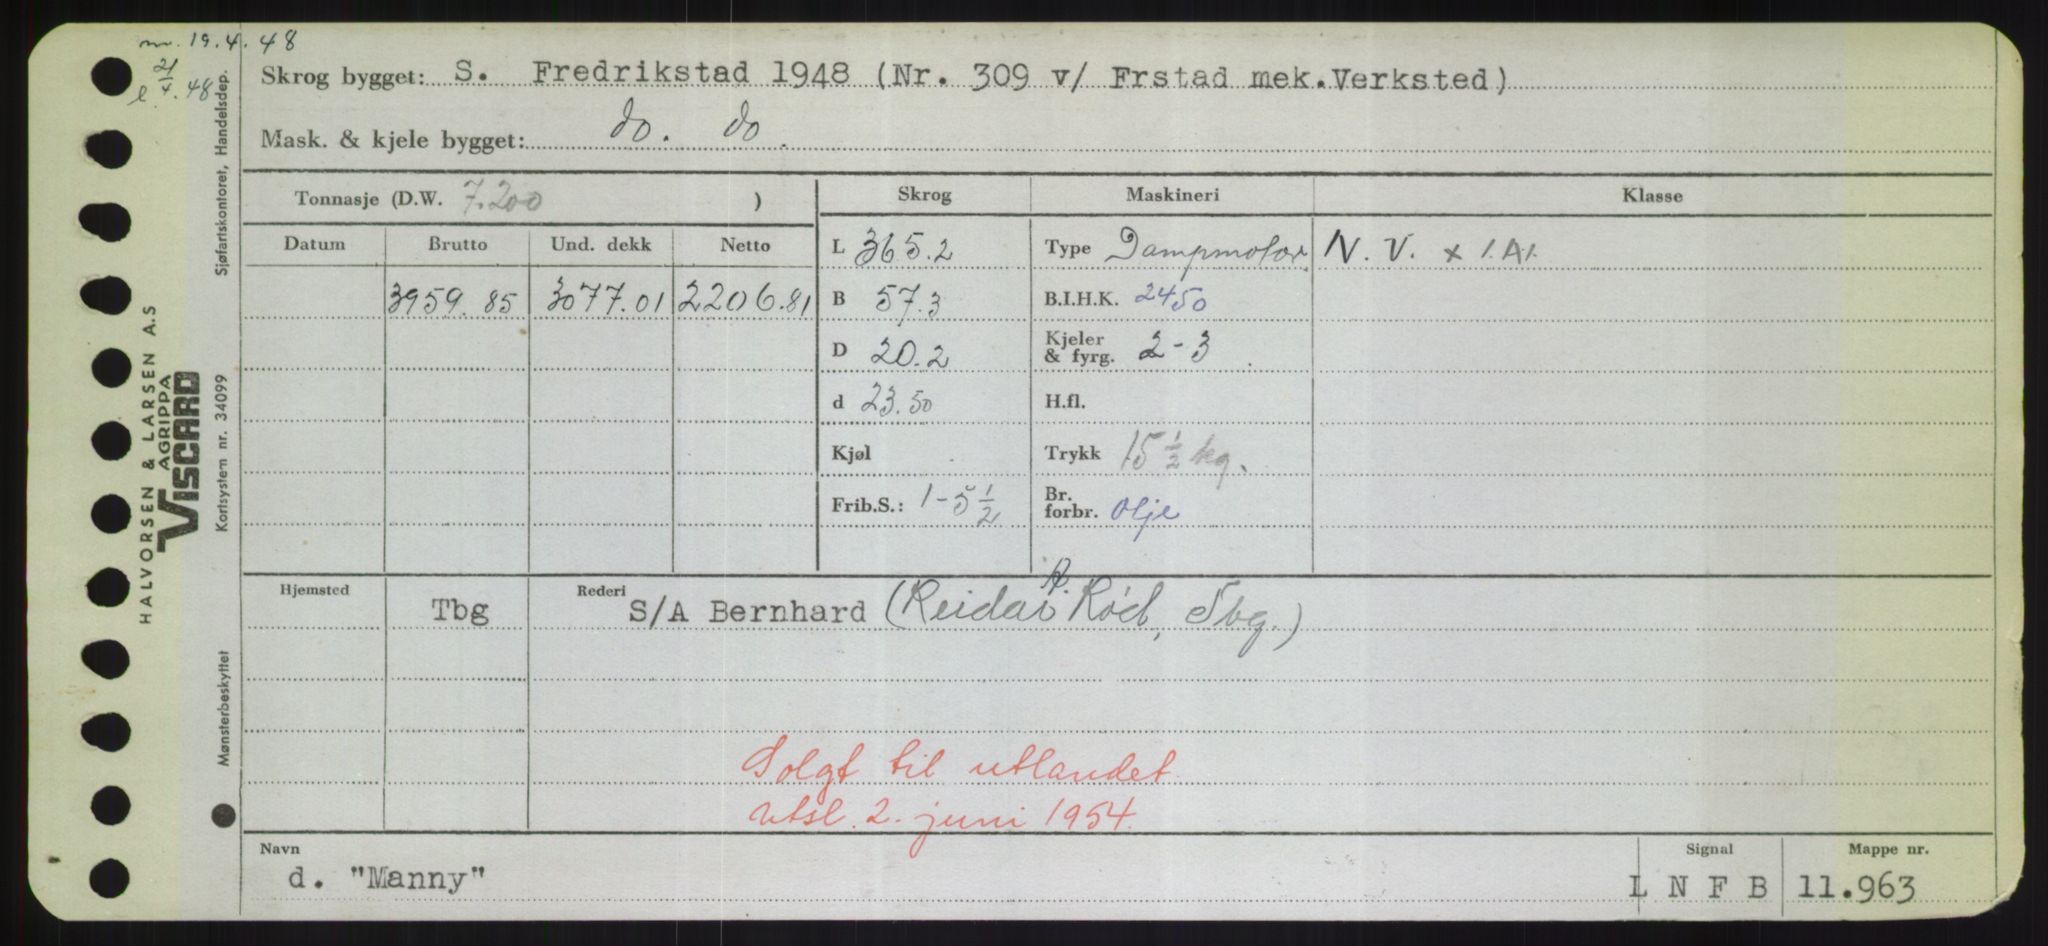 m. 19.4.48
21/4.48
Skrog bygget: S. Fredrikstad 1948 (Nr. 309 v/ Frstad mek.Verksted)
Mask. & kjele bygget: do. do.
Tonnasje (D.W. 7.200 )
Skrog Maskineri Klasse
Datum Brutto Und. dekk Netto
L 365.2 Type Dampmotor N. V. x 1.A1.
3959.85 3077.01 2206.81 B 57.3 B.I.H.K. 2450
D 20.2 Kjeler & fyrg. 2-3
d 23.50 H.fl.
Kjøl Trykk 15 1/2 kg.
Frib.S.: 1-5 1/2 Br. forbr. Olje
Hjemsted Rederi
Tbg S/A Bernhard (Reidar A. Röd, Tbg.)
Solgt til utlandet
utsl. 2. juni 1954.
Navn Signal Mappe nr.
d. "Manny" L N F B 11.963
Sjøfartskontoret, Handelsdep.
HALVORSEN & LARSEN A.S
AGRIPPA
VISCARD
Kortsystem nr. 34099
Mønsterbeskyttet